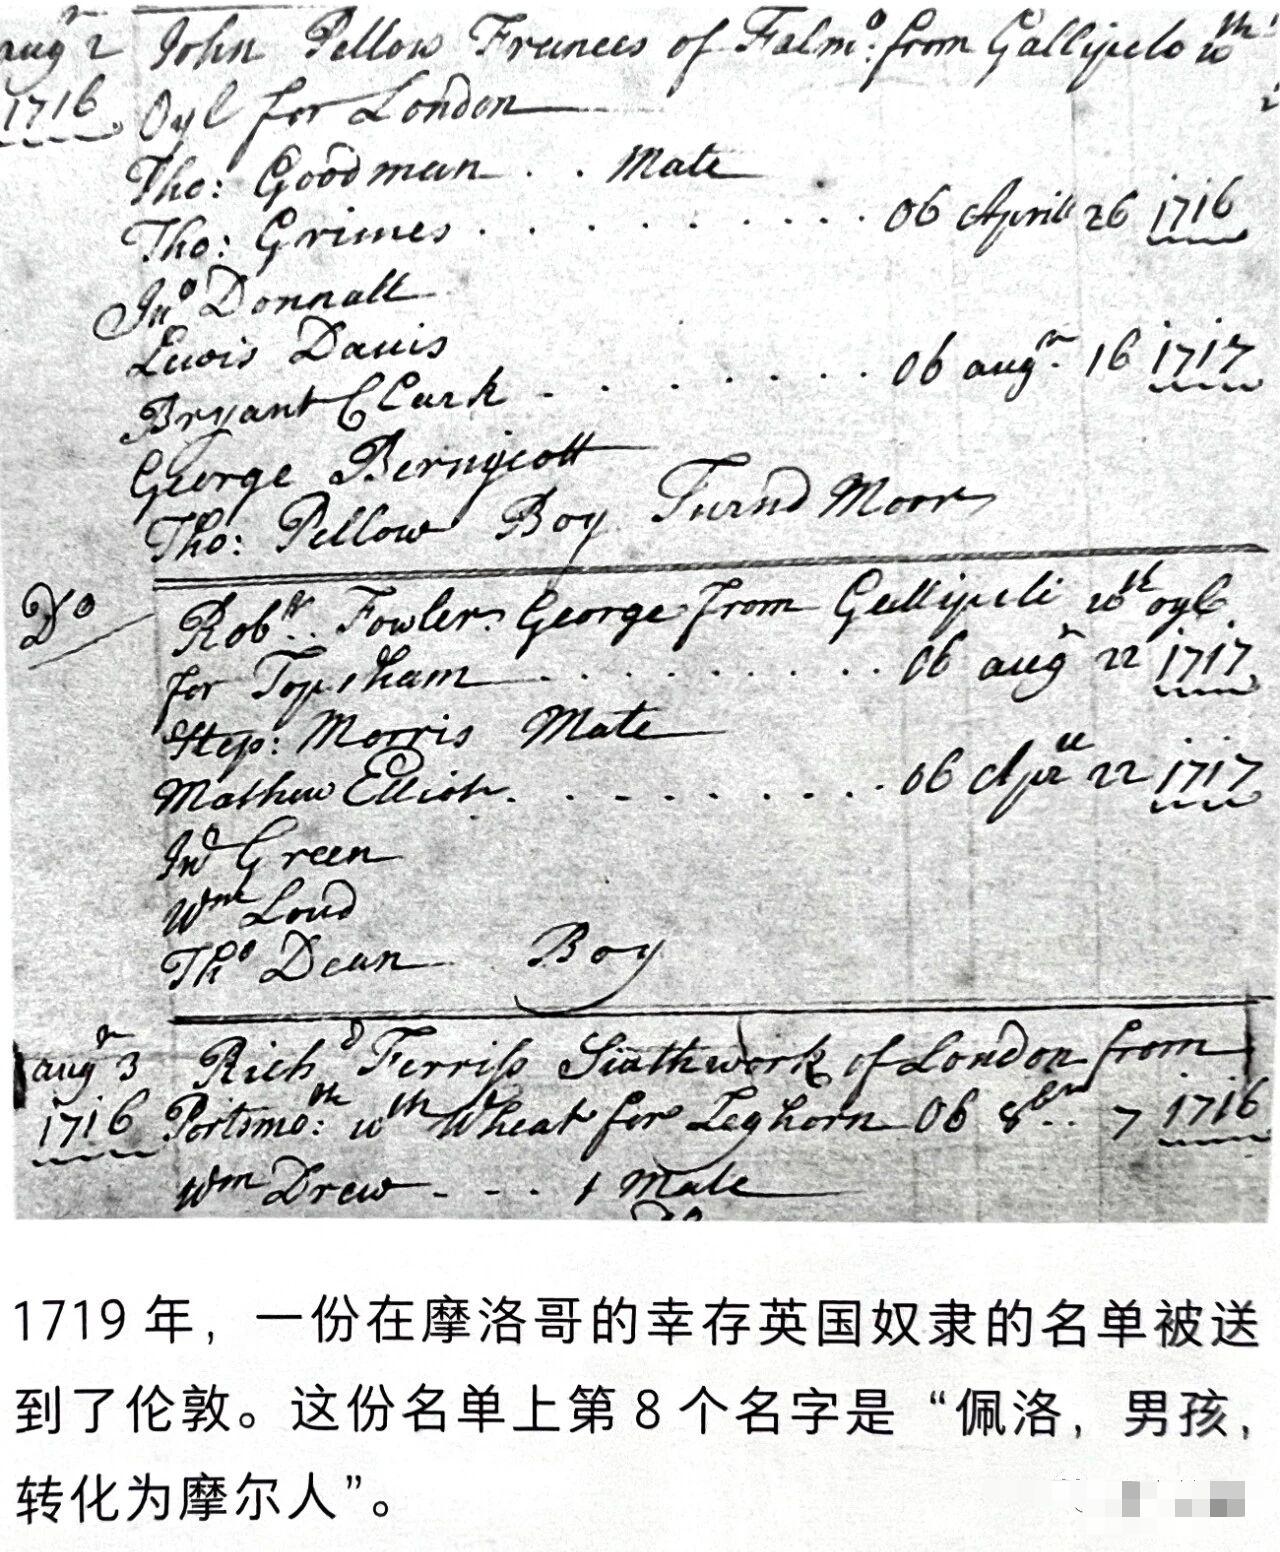 augʳ 2 John Pellow Frances of Falmº: from Gallipelo wᵗʰ
1716 Oyl for London
Tho: Goodman . . Mate
Tho: Grimes . . . . . . . . . 06 Aprill 26 1716
Jnº Donnall
Lewis Davis
Bryant Clark . . . . . . . 06 augʳ 16 1717
George Bernycott
Tho: Pellow Boy Turnd Moor
Dº Robʳᵗ.. Fowler George from Gallipeli wᵗʰ oyl
for Topsham . . . . . . . . . 06 augʳ 22 1717
Step: Morris Mate
Mathew Elliot . . . . . . . . . 06 Aprˡˡ 22 1717
Jnº Green
Wᵐ Loud
Thº Dean Boy
augʳ 3 Richᵈ Ferriss of London from
1716 Portsmoᵗʰ: wᵗʰ Wheat for Leghorn 06 8ᵇʳ.. 7 1716
Wᵐ Drew - - - . 1 Mate
1719 年，一份在摩洛哥的幸存英国奴隶的名单被送
到了伦敦。这份名单上第 8 个名字是“佩洛，男孩，
转化为摩尔人”。